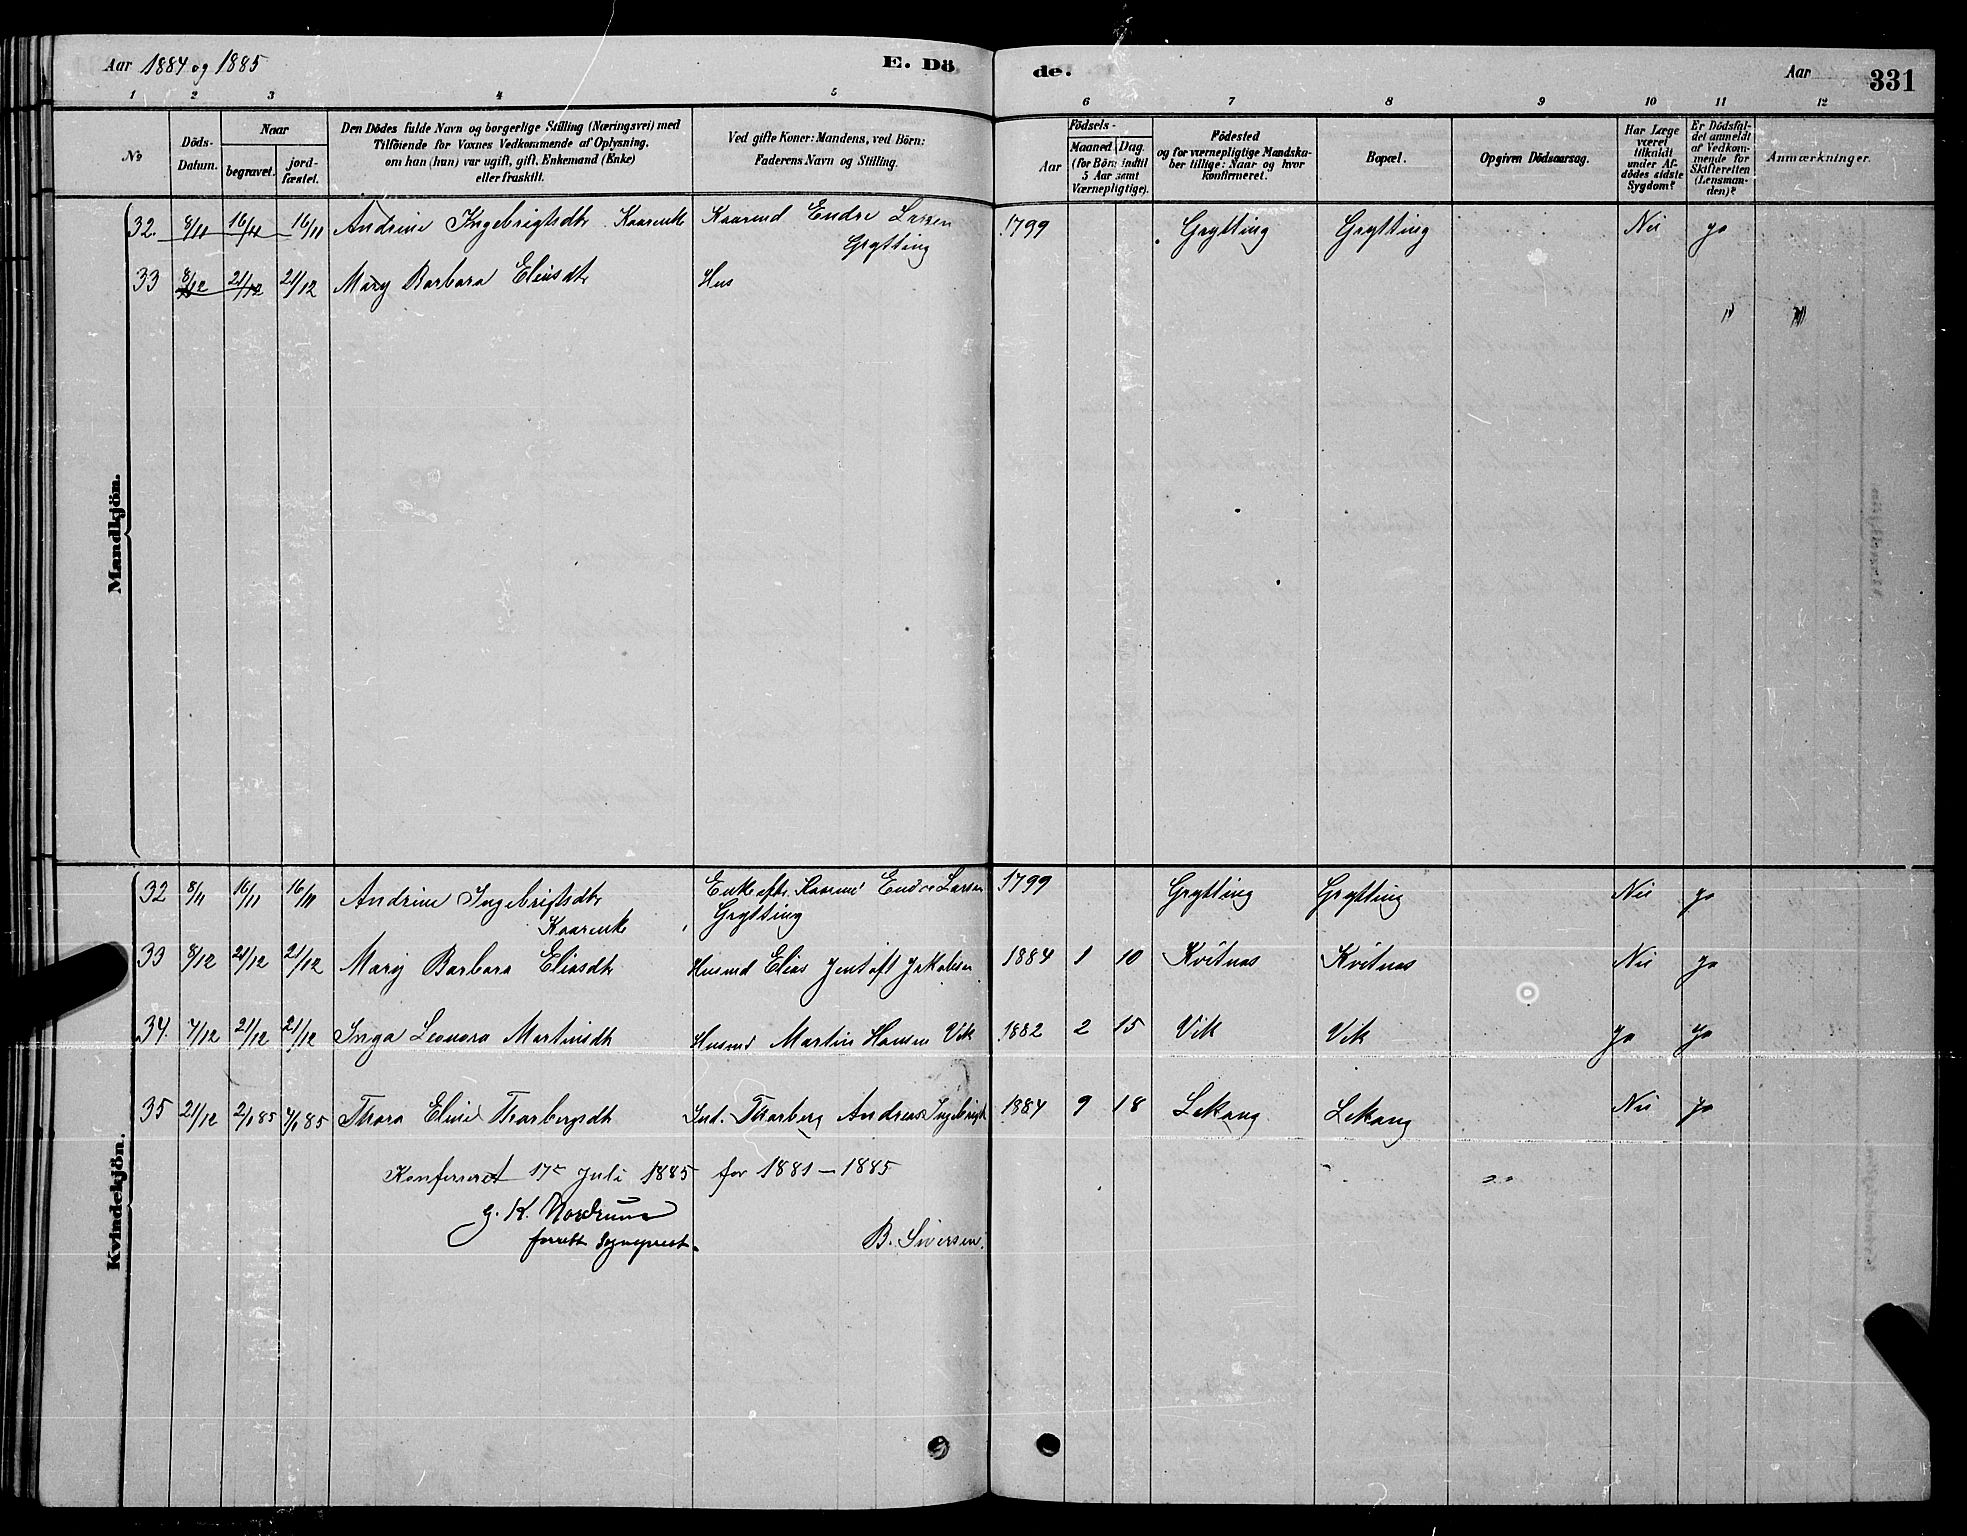 Aar 1884 og 1885 E. Döde. Aar 331
1 2 3 4 5 6 7 8 9 10 11 12
No
Döds-Datum.
Naar
begravet.
jord-fæstet.
Den Dödes fulde Navn og borgerlige Stilling (Næringsvei) med
Tilföiende for Voxnes Vedkommende af Oplysning,
om han (hun) var ugift, gift, Enkemand (Enke)
eller fraskilt.
Ved gifte Koner: Mandens, ved Börn:
Faderens Navn og Stilling.
Födsels-
Aar
Maaned Dag.
(for Börn indtil
5 Aar samt
Værnepligtige).
Födested
og for værnepligtige Mandska-
ber tillige: Naar og hvor
konfirmeret.
Bopæl.
Opgiven Dödsaarsag.
Har Læge
været
tilkaldt
under Af-
dödes sidste
Sygdom?
Er Dödsfal-
det anmeldt
af Vedkom-
mende for
Skifteretten
(Lensman-
den)?
Anmærkninger.
Mandkjön.
32. 8/11 16/11 16/11 Andrine Ingebrigtsdtr Kaarenke Kaarmd Endre Larsen 1799 Grytting Grytting Nei ja
Grytting
33 8/12 21/12 21/12 Mary Barbara Eliasdtr Hus
Kvindekjön.
32 8/11 16/11 16/11 Andrine Ingebrigtsdtr Enke eftr. Kaarmd Endre Larsen 1799 Grytting Grytting Nei ja
Kaarenke Grytting
33 8/12 21/12 21/12 Mary Barbara Eliasdtr Husmd Elias Jentoft Jakobsen 1884 1 10 Kvitnes Kvitnes Nei ja
34. 7/12 21/12 21/12 Inga Leonora Martinsdtr Husmd Martin Hansen Vik 1882 2 15 Vik Vik ja ja
35 21/12 2/1 85 4/1 85 Thora Eline Thorbergsdtr Ind. Thorberg Andreas Ingebrigts 1884 9 18 Lekang Lekang Nei ja
Konfereret 17de Juli 1885 for 1881 – 1885
G. K. Nordrum
forrett Sogneprest. B. Siversen.